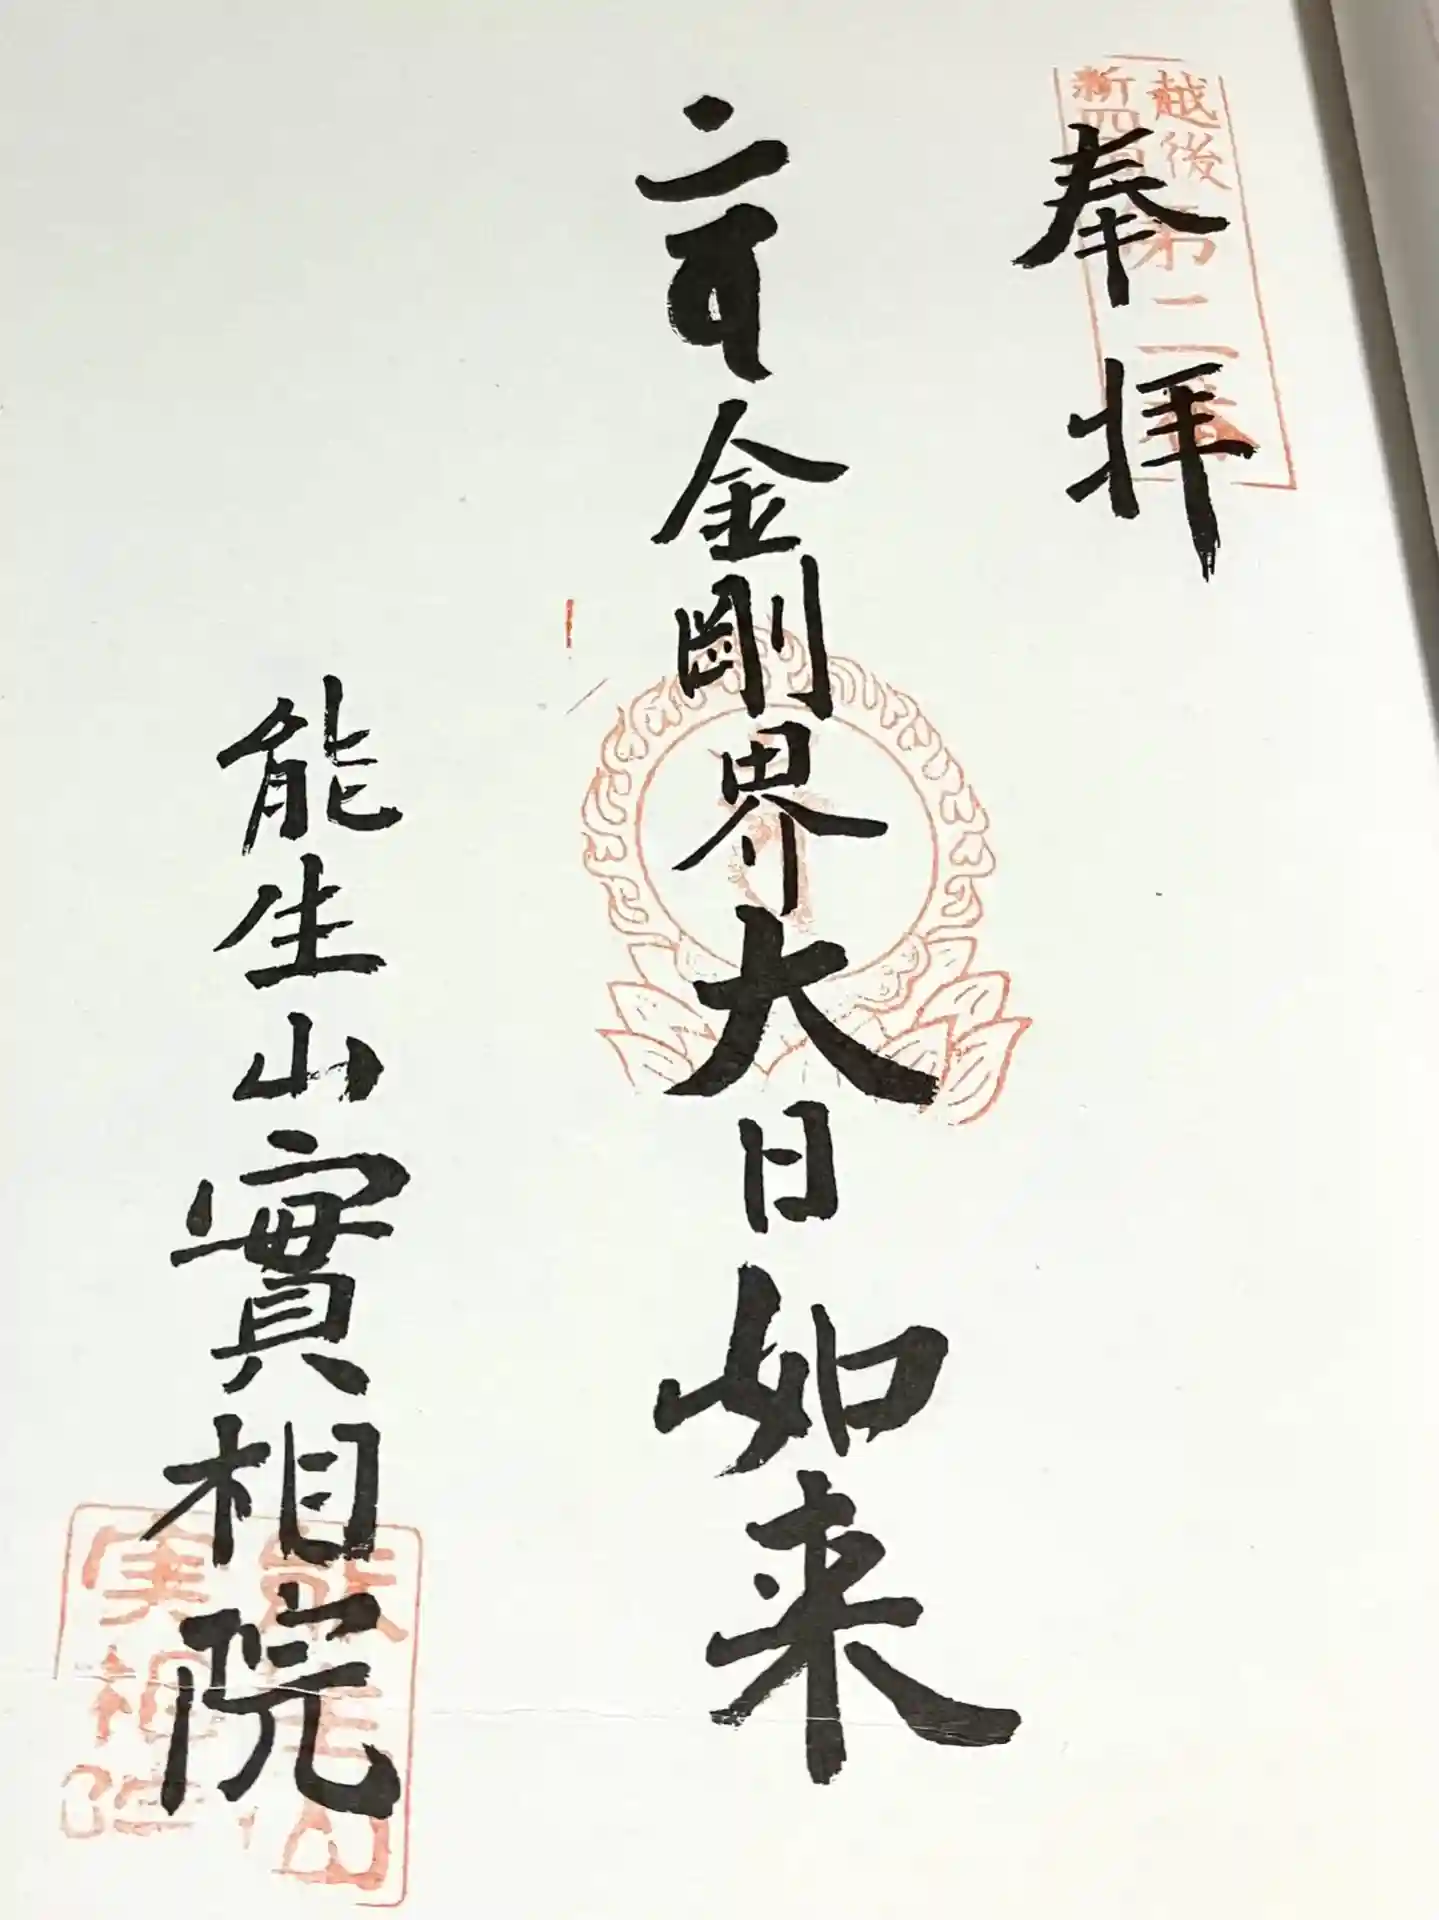 越後第二番
新四
奉拝
金剛界大日如来
能生山實相院
能生山
実相院